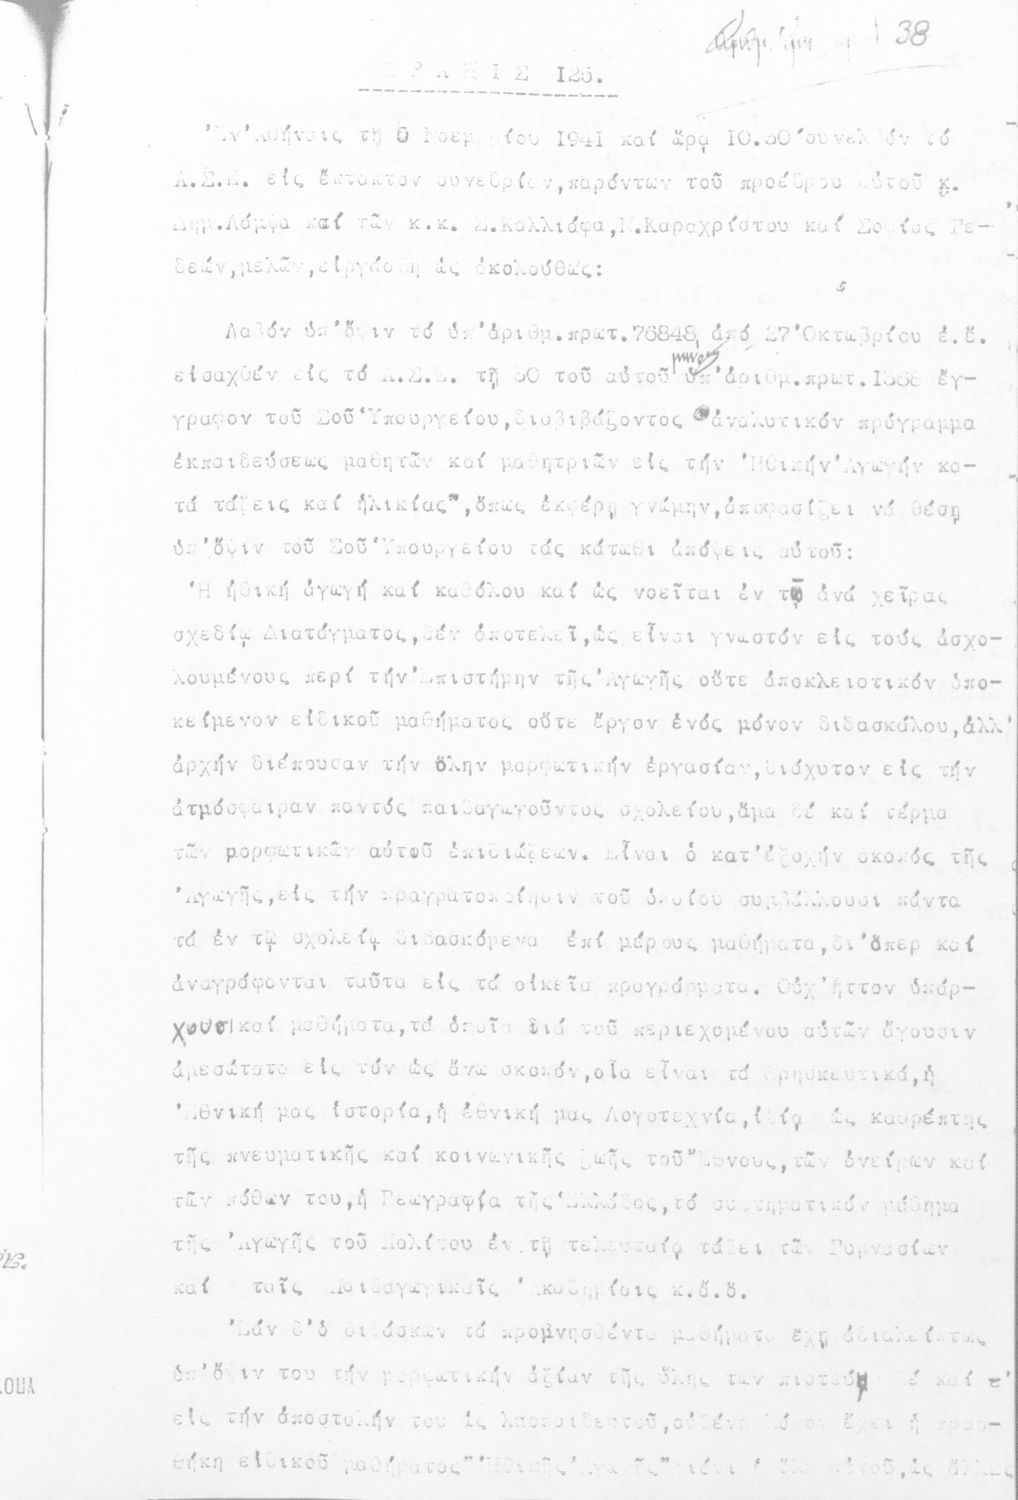 38
ΠΡΑΞΙΣ 125.
Ἐν Ἀθήναις τῇ 6 Νοεμβρίου 1941 καί ὥρᾳ 10.30 συνελθόν τό
Α.Σ.Ε. εἰς ἔκτακτον συνεδρίαν, παρόντων τοῦ προέδρου αὐτοῦ κ.
Δημ. Λάμψα καί τῶν κ.κ. Σ. Καλλιάφα, Ν. Καραχρίστου καί Σοφίας Γε-
δεών, μελῶν, εἰργάσθη ὡς ἀκολούθως:
Λαβόν ὑπ' ὄψιν τό ὑπ' ἀριθμ. πρωτ. 76848 ἀπό 27 Ὀκτωβρίου ἐ.ἔ.
εἰσαχθέν εἰς τό Α.Σ.Ε. τῇ 30 τοῦ αὐτοῦ μηνός ὑπ' ἀριθμ. πρωτ. 1368 ἔγ-
γραφον τοῦ Σοῦ Ὑπουργείου, διαβιβάζοντος ἀναλυτικόν πρόγραμμα
ἐκπαιδεύσεως μαθητῶν καί μαθητριῶν εἰς τήν Ἠθικήν Ἀγωγήν κα-
τά τάξεις καί ἡλικίας", ὅπως ἐκφέρῃ γνώμην, ἀποφασίζει νά θέσῃ
ὑπ' ὄψιν τοῦ Σοῦ Ὑπουργείου τάς κάτωθι ἀπόψεις αὐτοῦ:
Ἡ ἠθική ἀγωγή καί καθόλου καί ὡς νοεῖται ἐν τῷ ἀνά χεῖρας
σχεδίῳ Διατάγματος, δέν ἀποτελεῖ, ὡς εἶναι γνωστόν εἰς τούς ἀσχο-
λουμένους περί τήν Ἐπιστήμην τῆς Ἀγωγῆς οὔτε ἀποκλειστικόν ὑπο-
κείμενον εἰδικοῦ μαθήματος οὔτε ἔργον ἑνός μόνον διδασκάλου, ἀλλ'
ἀρχήν διέπουσαν τήν ὅλην μορφωτικήν ἐργασίαν, διάχυτον εἰς τήν
ἀτμόσφαιραν παντός παιδαγωγοῦντος σχολείου, ἅμα δέ καί τέρμα
τῶν μορφωτικῶν αὐτοῦ ἐπιδιώξεων. Εἶναι ὁ κατ' ἐξοχήν σκοπός τῆς
Ἀγωγῆς, εἰς τήν πραγματοποίησιν τοῦ ὁποίου συμβάλλουσι πάντα
τά ἐν τῷ σχολείῳ διδασκόμενα ἐπί μέρους μαθήματα, δι' ὅπερ καί
ἀναγράφονται ταῦτα εἰς τά οἰκεῖα προγράμματα. Οὐχ' ἧττον ὑπάρ-
χουσι καί μαθήματα, τά ὁποῖα διά τοῦ περιεχομένου αὐτῶν ἄγουσιν
ἀμεσώτατα εἰς τόν ὡς ἄνω σκοπόν, οἷα εἶναι τά Θρησκευτικά, ἡ
Ἐθνική μας ἱστορία, ἡ ἐθνική μας Λογοτεχνία, ἰδίᾳ ὡς καθρέπτης
τῆς πνευματικῆς καί κοινωνικῆς ζωῆς τοῦ Ἔθνους, τῶν ὀνείρων καί
τῶν πόθων του, ἡ Γεωγραφία τῆς Ἑλλάδος, τό συστηματικόν μάθημα
τῆς Ἀγωγῆς τοῦ Πολίτου ἐν τῇ τελευταίᾳ τάξει τῶν Γυμνασίων
καί ταῖς Παιδαγωγικαῖς Ἀκαδημίαις κ.ἄ.ὅ.
Ἐάν δ' ὁ διδάσκων τά προμνησθέντα μαθήματα ἔχῃ ἀδιαλείπτως
ὑπ' ὄψιν του τήν μορφωτικήν ἀξίαν τῆς ὕλης των πιστεύῃ δέ καί
εἰς τήν ἀποστολήν του ὡς λαοπαιδευτοῦ, οὐδένα λόγον ἔχει ἡ προσ-
θήκη εἰδικοῦ μαθήματος "Ἠθικῆς Ἀγωγῆς" διότι ἡ ὕλη αὐτοῦ, ὡς ἄλλως